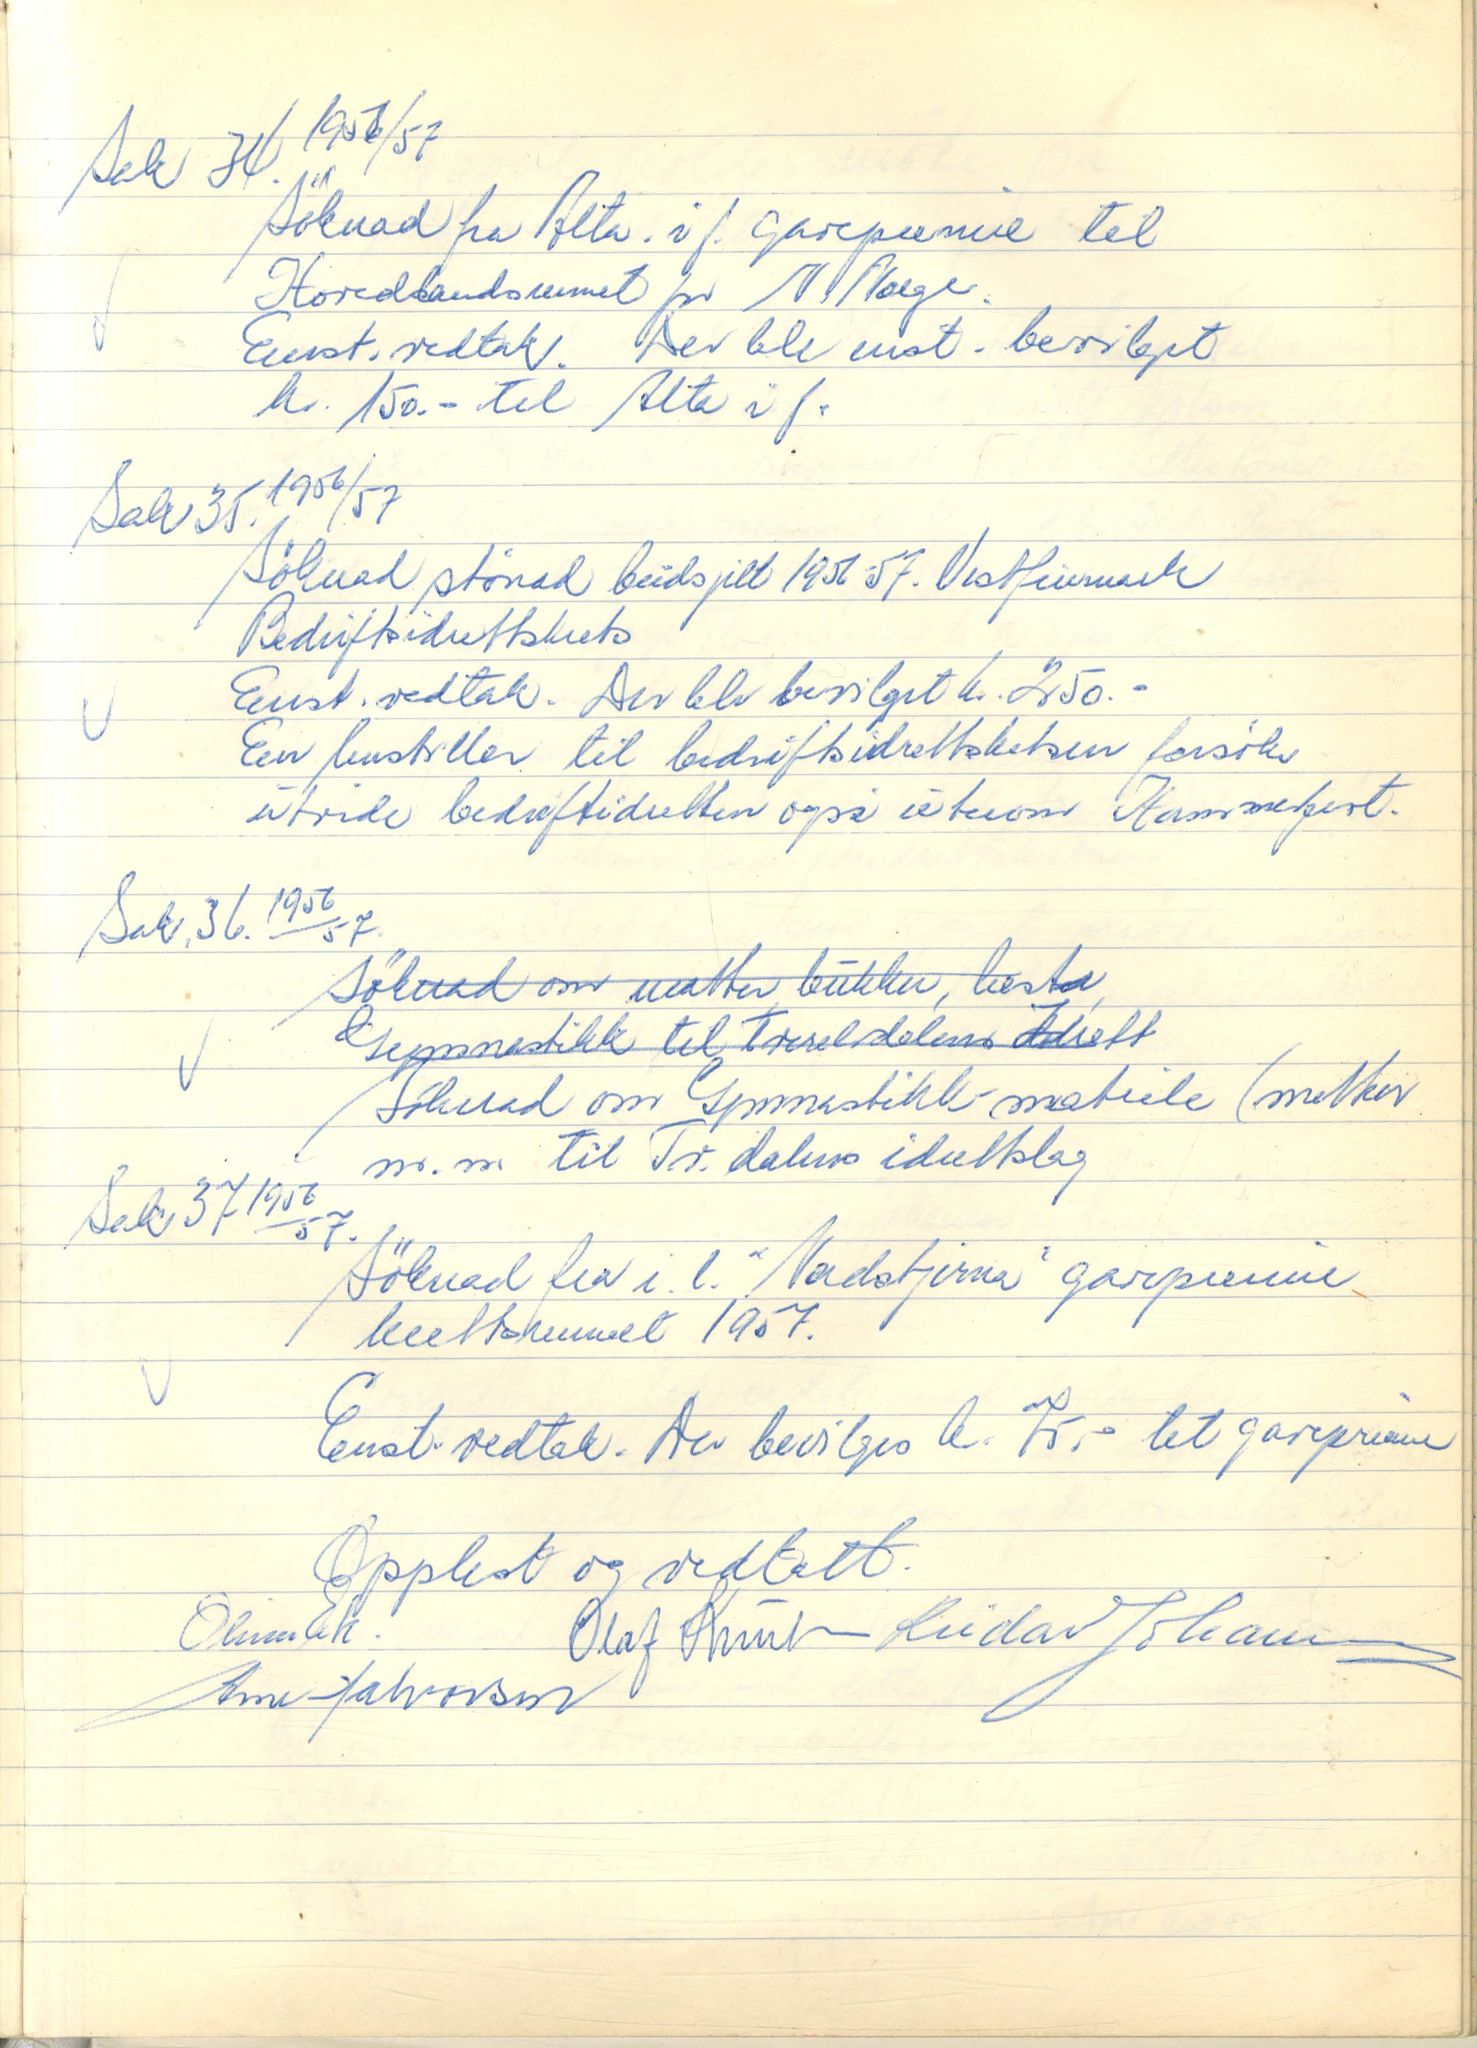 Sak 34. 1956/57
Söknad fra Alta. i f. garepremie til
Hovedlandsrennet for N. Norge.
Enst. vedtak. Der ble enst. bevilget
kr. 150.- til Alta i f.
Sak 35. 1956/57
Söknad stönad budsjett 1956-57. Vestfinnmark
Bedriftsidrettskrets
Enst. vedtak. Der ble bevilget kr. 250.-
En henstiller til bedriftsidrettskretsen forsöke
utvide bedriftidretten også utenom Hammerfest.
Sak. 36. 1956/57.
Söknad om matter, bukker, hesta,
Gymnastikk til Tverrelvdalens Idrett
Söknad om Gymnastikk-matriele (matter
m.m. til Tv. dalens idrettslag
Sak 37 1956/57.
Söknad fra i. l. "Nordstjerna" garepremie
kretsrennet 1957.
Enst. vedtak. Der bevilges kr. 75,- til garepremie
Opplest og vedtatt.
Olaf Reidar Johan
Arne Halvorsen